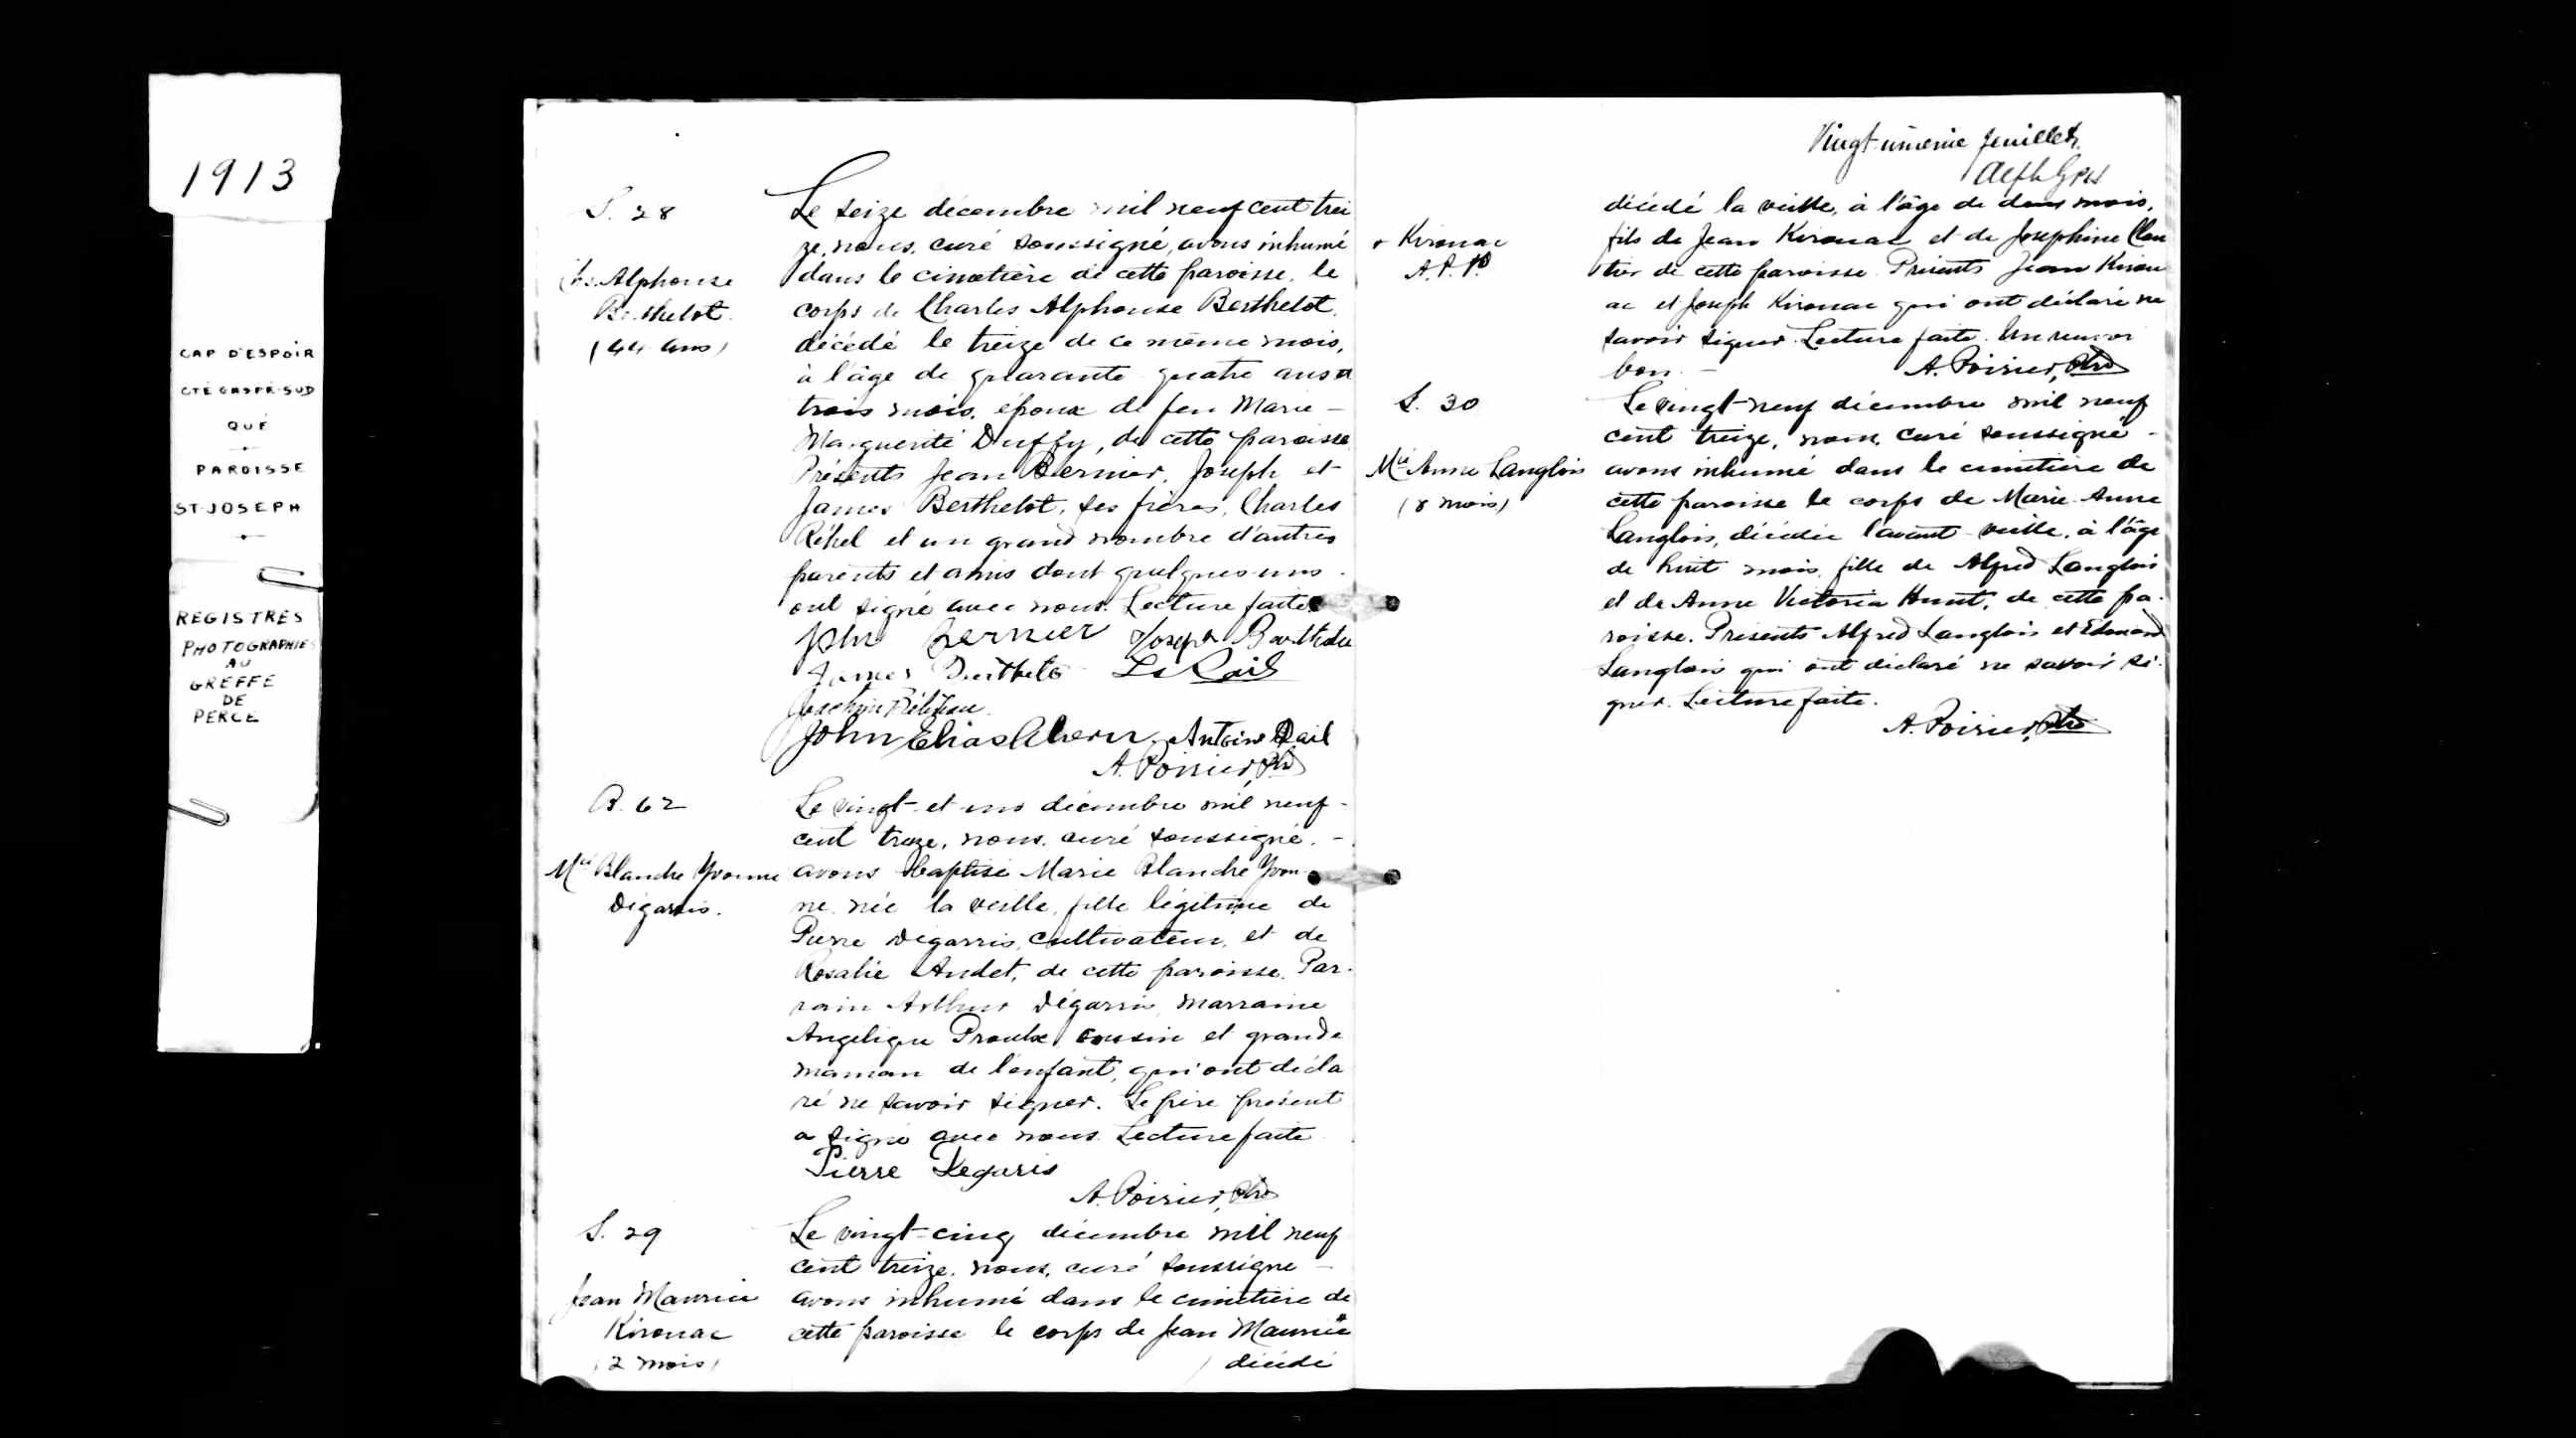 1913
CAP D'ESPOIR
CTÉ GASPÉ-SUD
QUÉ
PAROISSE
ST-JOSEPH
REGISTRES
PHOTOGRAPHIES
AU
GREFFE
DE
PERCÉ
S. 28
Chs. Alphonse
Berthelot.
(44 ans)
Le seize décembre mil neuf cent trei
ze, nous, curé soussigné, avons inhumé
dans le cimetière de cette paroisse, le
corps de Charles Alphonse Berthelot,
décédé le treize de ce même mois,
à l'âge de quarante quatre ans et
trois mois, époux de feu Marie-
Marguerite Duffy, de cette paroisse
Présents Jean Bernier, Joseph et
James Berthelot, ses frères, Charles
Réhel et un grand nombre d'autres
parents et amis dont quelques-uns
ont signé avec nous. Lecture faite
John Bernier Joseph
James
Joachim
John Elias Ahern. Antoine Rail
A. Poirier, Ptre
B. 62
Mie Blanche Yvonne
Dégarris.
Le vingt-et-un décembre mil neuf-
cent treize, nous, curé soussigné, -
avons baptisé Marie Blanche Yvon-
ne, née la veille, fille légitime de
Pierre Dégarris, cultivateur, et de
Rosalie Audet, de cette paroisse. Par-
rain Arthur Dégarris, marraine
Angélique Proulx, cousin et grande
maman de l'enfant, qui ont décla
ré ne savoir signer. Le père présent
a signé avec nous. Lecture faite
Pierre Degaris
A. Poirier, Ptre
S. 29
Jean Maurice
Kirouac
(2 mois)
Le vingt-cinq décembre mil neuf
cent treize, nous, curé soussigné -
avons inhumé dans le cimetière de
cette paroisse le corps de Jean Maurice
décédé
Vingt-unième feuillet.
+ Kirouac
A. P. Ptre
décédé la veille, à l'âge de deux mois,
fils de Jean Kirouac et de Josephine Clou
tier de cette paroisse. Présents Jean Kirou
ac et Joseph Kirouac qui ont déclaré ne
savoir signer. Lecture faite. Un renvoi
bon. -
A. Poirier, Ptre
S. 30
Mie Anne Langlois
(8 mois)
Le vingt-neuf décembre mil neuf
cent treize, nous, curé soussigné -
avons inhumé dans le cimetière de
cette paroisse le corps de Marie-Anne
Langlois, décédée l'avant-veille, à l'âge
de huit mois, fille de Alfred Langlois
et de Anne Victoria Hunt, de cette pa-
roisse. Présents Alfred Langlois et Edouard
Langlois qui ont déclaré ne savoir si-
gner. Lecture faite.
A. Poirier, Ptre